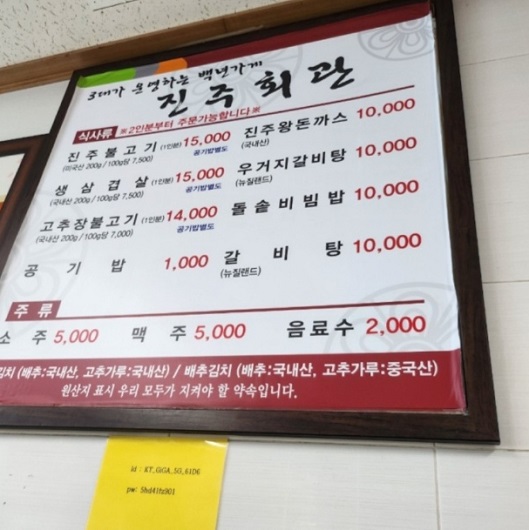 3대가 운영하는 백년가게
진주회관
식사류 ※2인분부터 주문가능합니다※
진주불고기 (1인분) 15,000
(미국산 200g / 100g당 7,500) 공기밥별도
생삼겹살 (1인분) 15,000
(국내산 200g / 100g당 7,500) 공기밥별도
고추장불고기 (1인분) 14,000
(국내산 200g / 100g당 7,000) 공기밥별도
공기밥 1,000
진주왕돈까스 10,000
(국내산)
우거지갈비탕 10,000
(뉴질랜드)
돌솥비빔밥 10,000
갈비탕 10,000
(뉴질랜드)
주류
소주 5,000 맥주 5,000 음료수 2,000
김치 (배추:국내산, 고추가루:국내산) / 배추김치 (배추:국내산, 고추가루:중국산)
원산지 표시 우리 모두가 지켜야 할 약속입니다.
id : KT_GiGA_5G_61D6
pw: 5bd41fz901